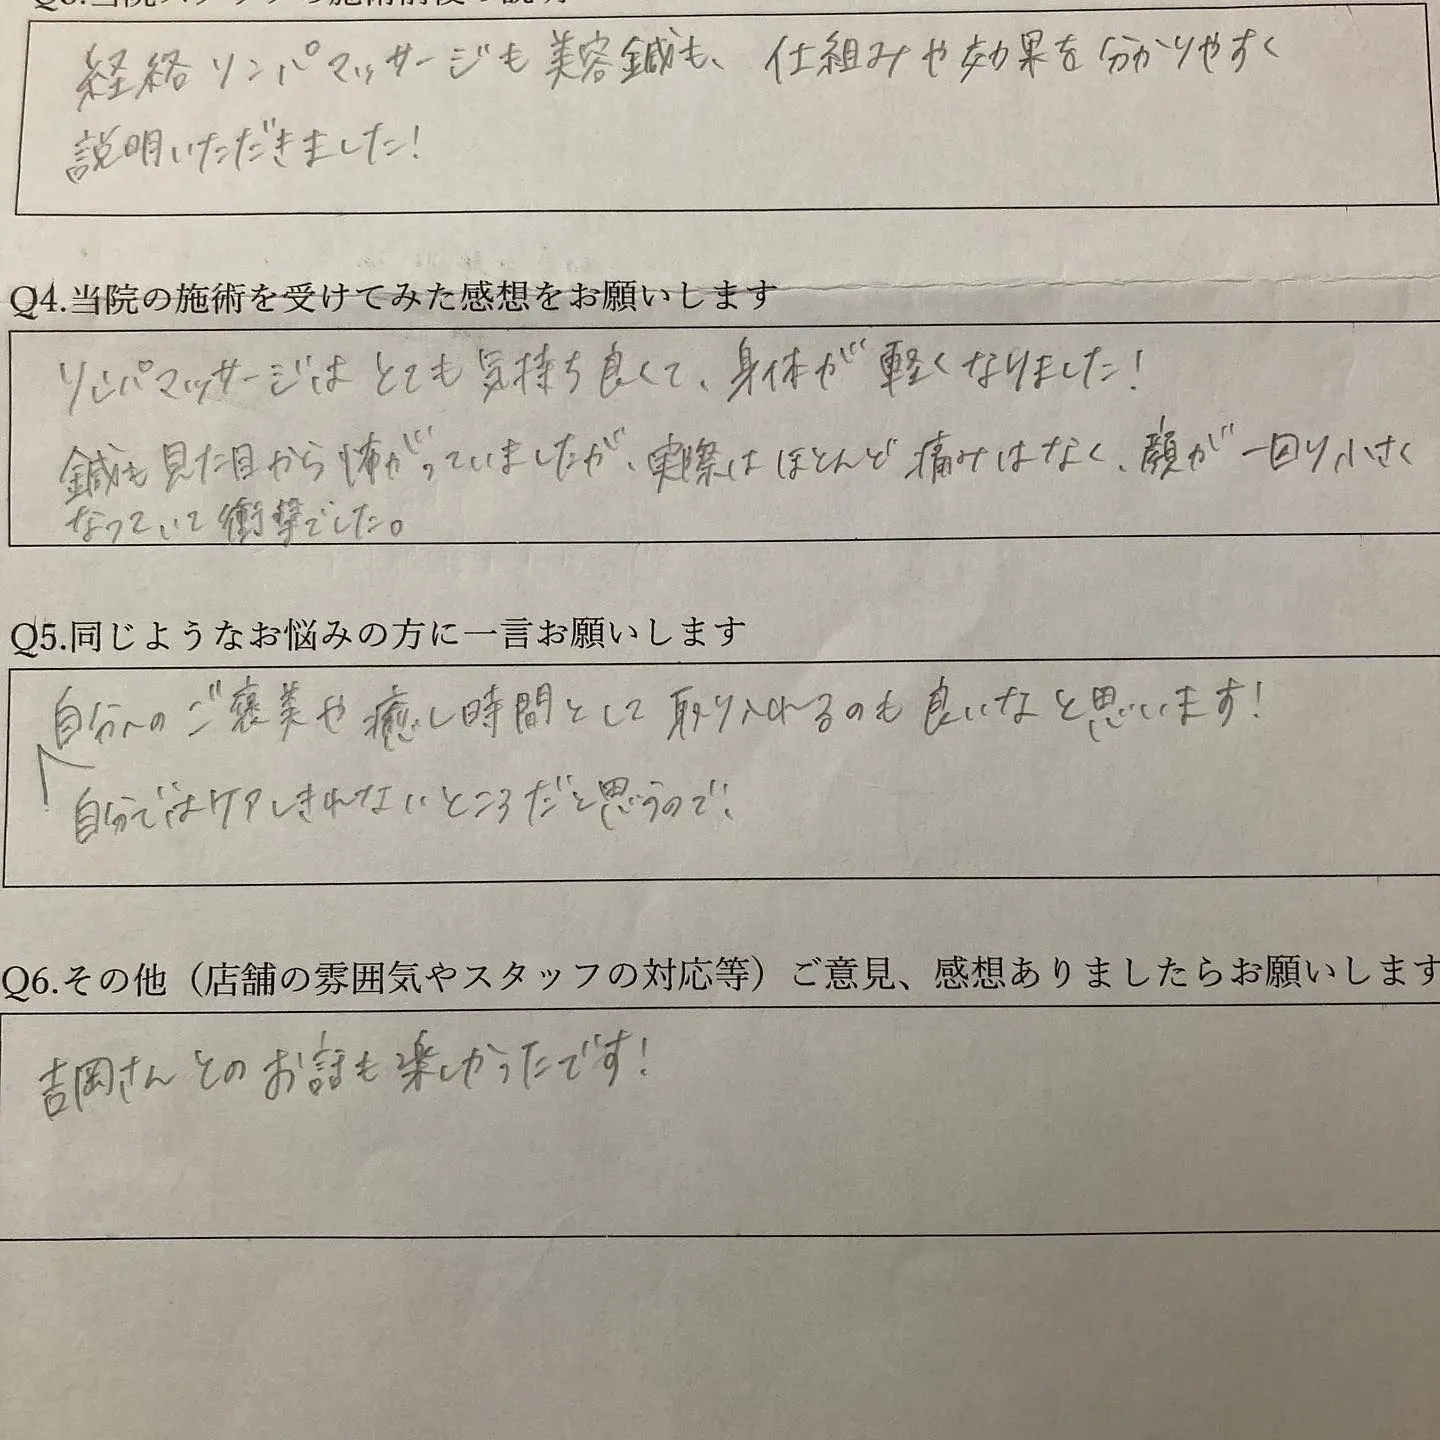 Q3.当院スタッフの施術前後の説明
経絡リンパマッサージも美容鍼も、仕組みや効果を分かりやすく
説明いただきました!
Q4.当院の施術を受けてみた感想をお願いします
リンパマッサージはとても気持ち良くて、身体が軽くなりました!
鍼も見た目から怖がっていましたが、実際はほとんど痛みはなく、顔が一回り小さく
なっていて衝撃でした。
Q5.同じようなお悩みの方に一言お願いします
自分へのご褒美や癒し時間として取り入れるのも良いなと思います!
自分ではケアしきれないところだと思うので、
Q6.その他（店舗の雰囲気やスタッフの対応等）ご意見、感想ありましたらお願いします
吉岡さんとのお話も楽しかったです!